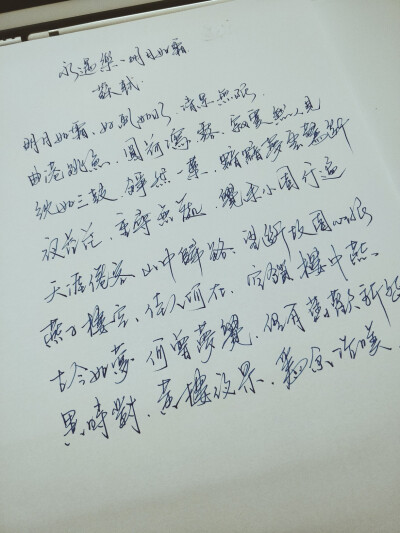 永遇樂·明月如霜
蘇軾
明月如霜、好風如水、清景無限
曲港跳魚、圓荷瀉露、寂寞無人見
紞如三鼓、鏗然一葉、黯黯夢雲驚斷
夜茫茫、重尋無處、覺來小園行遍
天涯倦客、山中歸路、望斷故園心眼
燕子樓空、佳人何在、空鎖樓中燕、
古今如夢、何曾夢覺、但有舊歡新怨
異時對、黃樓夜景、為余浩嘆、